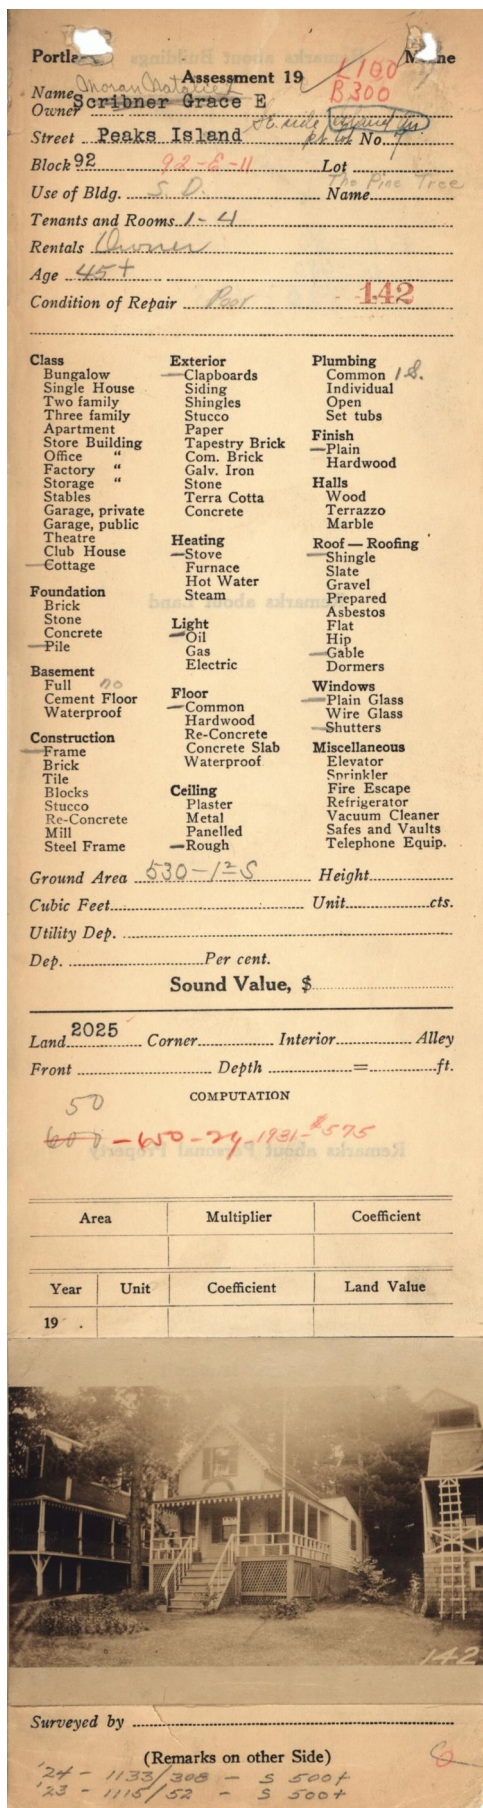 Portla M ne
Assessment 19
L100
B300
Name
Owner Scribner Grace E
Street Peaks Island No.
Block 92 92-E-11 Lot
The Pine Tree
Use of Bldg. S. D. Name
Tenants and Rooms 1-4
Rentals Owner
Age 45+
Condition of Repair Poor 142
Class
Bungalow
Single House
Two family
Three family
Apartment
Store Building
Office "
Factory "
Storage "
Stables
Garage, private
Garage, public
Theatre
Club House
Cottage
Foundation
Brick
Stone
Concrete
Pile
Basement
Full no
Cement Floor
Waterproof
Construction
Frame
Brick
Tile
Blocks
Stucco
Re-Concrete
Mill
Steel Frame
Exterior
Clapboards
Siding
Shingles
Stucco
Paper
Tapestry Brick
Com. Brick
Galv. Iron
Stone
Terra Cotta
Concrete
Heating
Stove
Furnace
Hot Water
Steam
Light
Oil
Gas
Electric
Floor
Common
Hardwood
Re-Concrete
Concrete Slab
Waterproof
Ceiling
Plaster
Metal
Panelled
Rough
Plumbing
Common 1 S.
Individual
Open
Set tubs
Finish
Plain
Hardwood
Halls
Wood
Terrazzo
Marble
Roof — Roofing
Shingle
Slate
Gravel
Prepared
Asbestos
Flat
Hip
Gable
Dormers
Windows
Plain Glass
Wire Glass
Shutters
Miscellaneous
Elevator
Sprinkler
Fire Escape
Refrigerator
Vacuum Cleaner
Safes and Vaults
Telephone Equip.
Ground Area 530-1 2 S Height
Cubic Feet Unit cts.
Utility Dep.
Dep. Per cent.
Sound Value, $
Land 2025 Corner Interior Alley
Front Depth = ft.
COMPUTATION
50
600 - 650 - 24 - 1931 - $575
Area Multiplier Coefficient
Year Unit Coefficient Land Value
19 .
142
Surveyed by
(Remarks on other Side)
'24 - 1133/308 - S 500+
'23 - 1115/52 - S 500+